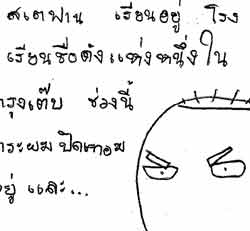 สเตฟาน เรียนอยู่ โรง
เรียนชื่อดังแห่งหนึ่งใน
กรุงเต๊บ ช่วงนี้
กระผม ปิดเทอม
อยู่ และ...